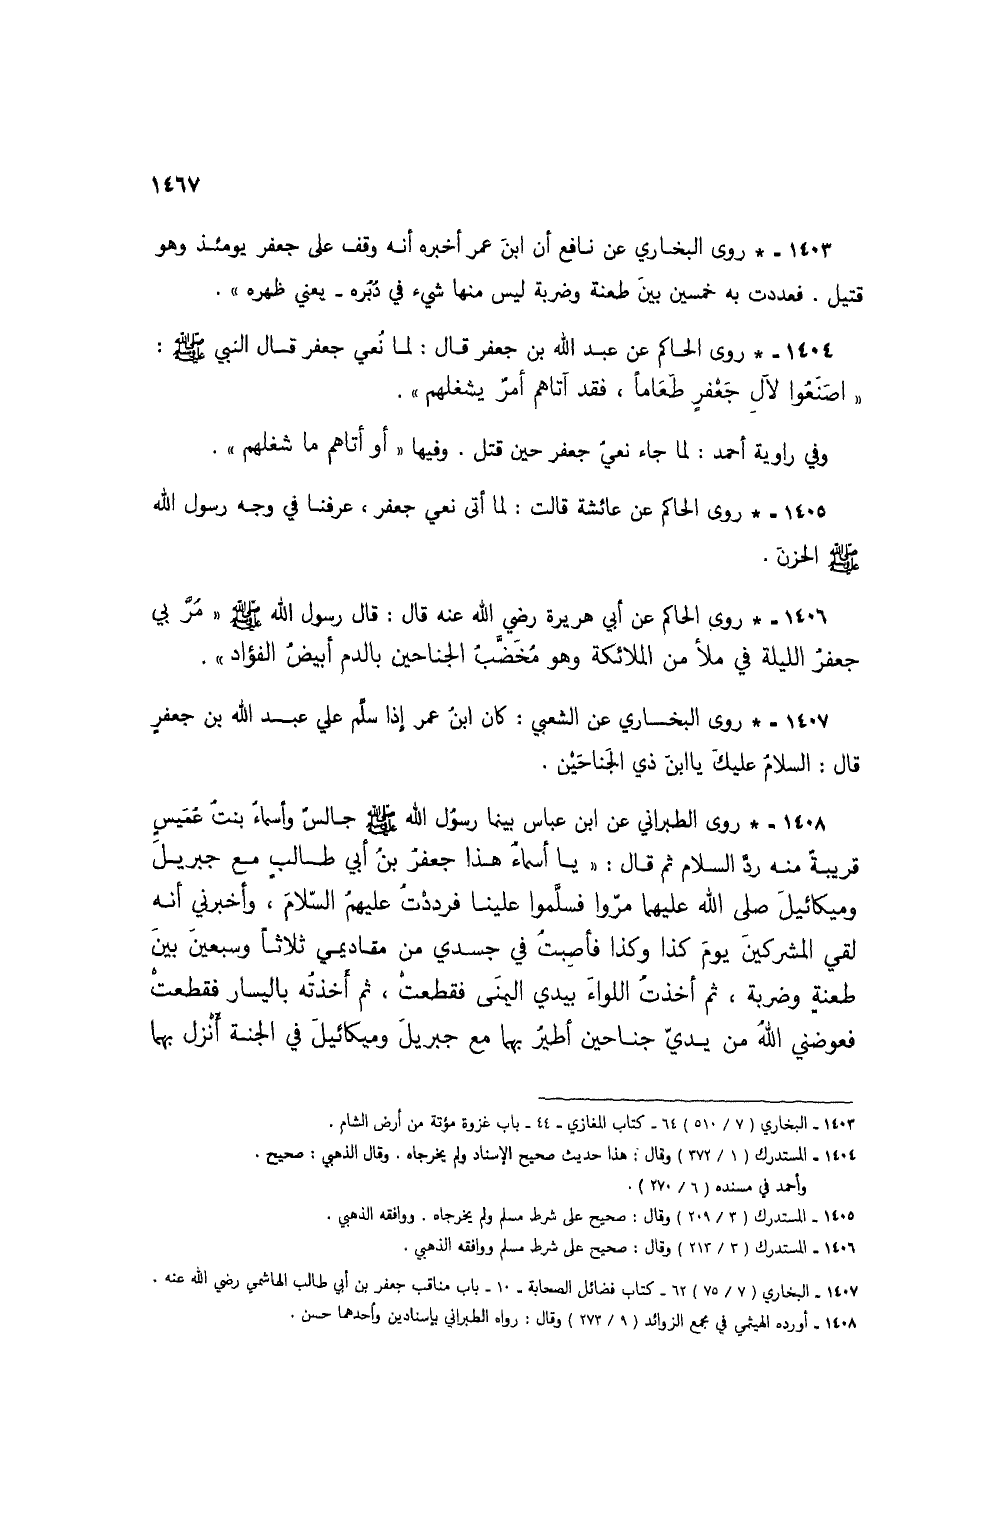 ١٤٦٧
١٤٠٣ - * روى البخاري عن نافع أن ابنَ عمر أخبره أنه وقف على جعفر يومئذ وهو
قتيل . فعددت به خمسين بينَ طعنة وضربة ليس منها شيء في دُبُره - يعني ظهره » .
١٤٠٤ - * روى الحاكم عن عبد الله بن جعفر قال : لما نُعي جعفر قال النبي ﷺ :
« اصنَعُوا لآلِ جَعْفرٍ طَعَاماً ، فقد آتاهم أمرٌ يشغلهم » .
وفي راوية أحمد : لما جاء نعيُ جعفر حين قتل . وفيها « أو أتاهم ما شغلهم » .
١٤٠٥ - * روى الحاكم عن عائشة قالت : لما أتى نعي جعفر ، عرفنا في وجه رسول الله
ﷺ الحزنَ .
١٤٠٦ - * روى الحاكم عن أبي هريرة رضي الله عنه قال : قال رسول الله ﷺ « مَرَّ بي
جعفرٌ الليلة في ملأ من الملائكة وهو مُخَضَّبُ الجناحين بالدم أبيضُ الفؤاد » .
١٤٠٧ - * روى البخاري عن الشعبي : كان ابنُ عمر إذا سلَّم علي عبد الله بن جعفرٍ
قال : السلامُ عليكَ ياابنَ ذي الجَناحَيْن .
١٤٠٨ - * روى الطبراني عن ابن عباس بينما رسوُل الله ﷺ جالسٌ وأسماءُ بنتُ عُمَيسٍ
قريبةٌ منه ردَّ السلام ثم قال : « يا أسماءُ هذا جعفرُ بنُ أبي طالبٍ مع جبريلَ
وميكائيلَ صلى الله عليهما مرّوا فسلَّموا علينا فرددْتُ عليهمُ السّلامَ ، وأخبرني أنه
لقي المشركينَ يومَ كذا وكذا فأصِبتُ في جسدي من مقاديمي ثلاثاً وسبعينَ بينَ
طعنةٍ وضربة ، ثم أخذتُ اللواءَ بيدي اليمَنى فقطعتْ ، ثم أَخذتُه باليسار فقطعتْ
فعوضني اللهُ من يديّ جناحين أطيرُ بهما مع جبريلَ وميكائيلَ في الجنة أَنْزل بهما
١٤٠٣ - البخاري ( ٧ / ٥١٠ ) ٦٤ - كتاب المغازي - ٤٤ - باب غزوة مؤتة من أرض الشام .
١٤٠٤ - المستدرك ( ١ / ٣٧٢ ) وقال : هذا حديث صحيح الإسناد ولم يخرجاه . وقال الذهبي : صحيح .
وأحمد في مسنده ( ٦ / ٢٧٠ ) .
١٤٠٥ - المستدرك ( ٣ / ٢٠٩ ) وقال : صحيح على شرط مسلم ولم يخرجاه . ووافقه الذهبي .
١٤٠٦ - المستدرك ( ٣ / ٢١٢ ) وقال : صحيح على شرط مسلم ووافقه الذهبي .
١٤٠٧ - البخاري ( ٧ / ٧٥ ) ٦٢ - كتاب فضائل الصحابة - ١٠ - باب مناقب جعفر بن أبي طالب الهاشمي رضي الله عنه .
١٤٠٨ - أورده الهيثمي في مجمع الزوائد ( ٩ / ٢٧٢ ) وقال : رواه الطبراني بإسنادين وأحدهما حسن .